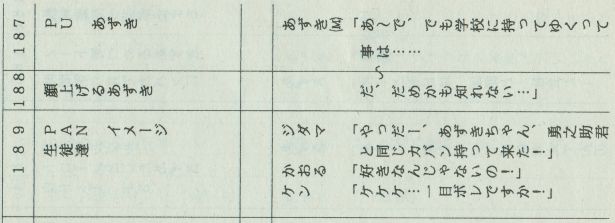 187
PU あずき
あずき(M)「あ〜で、でも学校に持ってゆくって
事は……
188
顔上げるあずき
だ、だめかも知れない…」
189
PAN イメージ
生徒達
ジダマ「やっだー、あずきちゃん、勇之助君
と同じカバン持って来た!」
かおる「好きなんじゃないの!」
ケン「ケケケ…一目ボレですか!」